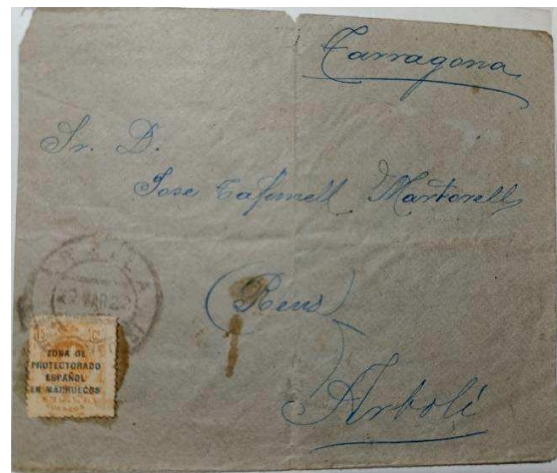 Tarragona
Sr. D.
Jose Martorell
(Reus)
Arbolí
MAR 2
ZONA DE
PROTECTORADO
ESPAÑOL
EN MARRUECOS